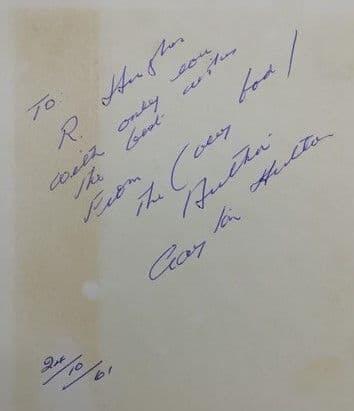 To:
R. Hughes
with only
the best wishes
From
The (very bad!)
Author
Hutton
24/10/61